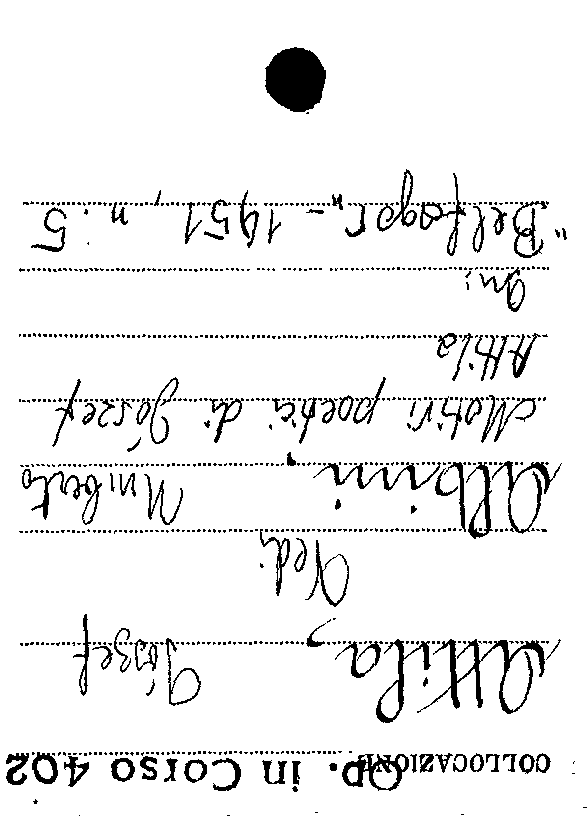 COLLOCAZIONE Op. in Corso 402
Attila, József
Vedi
Albini, Umberto
Motivi poetici di József
Attila
In:
"Belfagor" - 1951, n. 5